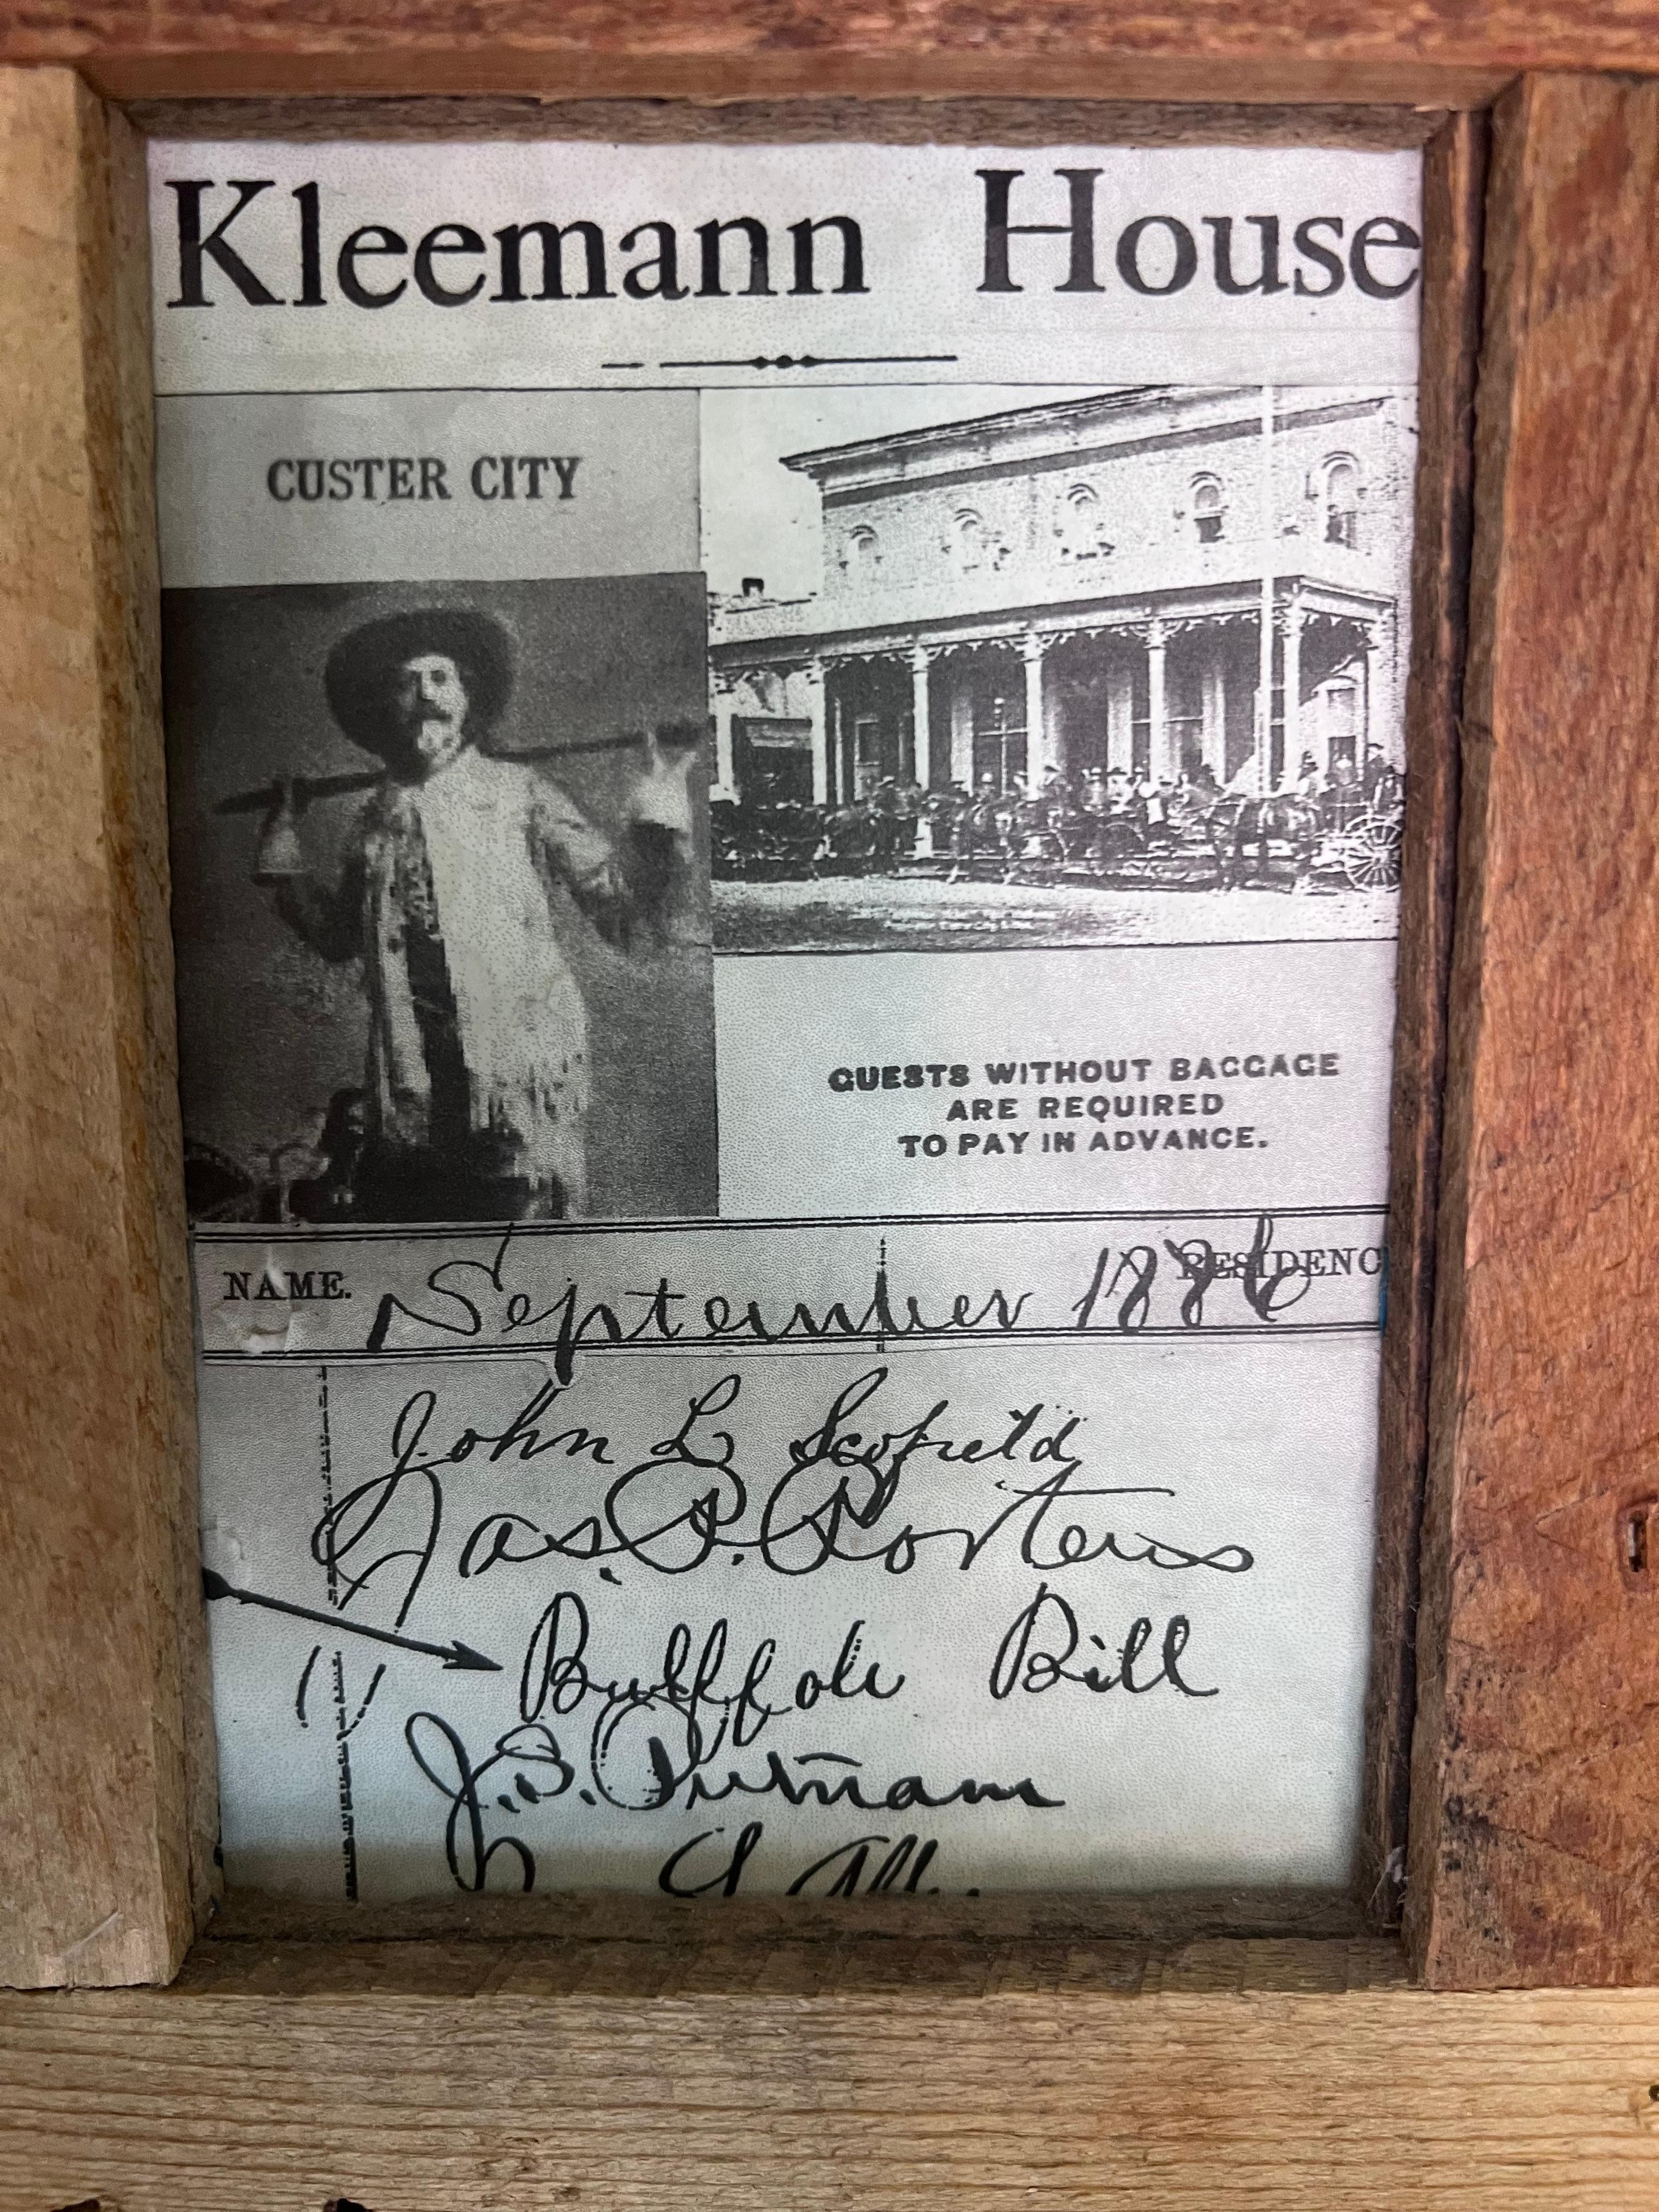 Kleemann House
CUSTER CITY
GUESTS WITHOUT BAGGAGE
ARE REQUIRED
TO PAY IN ADVANCE.
NAME. RESIDENC
September 1886
John L Scofield
Jas. P. Porteus
Buffalo Bill
J.S. Putnam